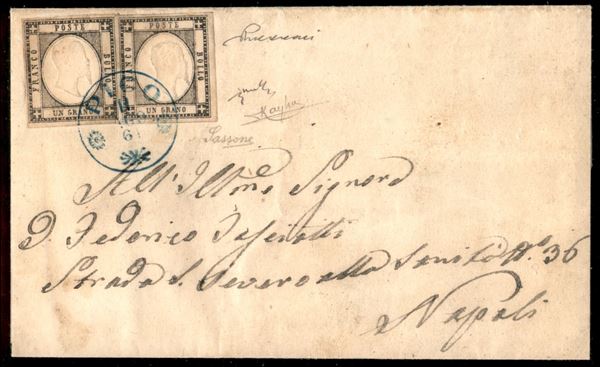 FRANCO POSTE BOLLO UN GRANO
FRANCO POSTE BOLLO UN GRANO
Sassone
All' Illmo Signore
D. Federico
Strada S. Severo alla Sanità N.o 36
Napoli